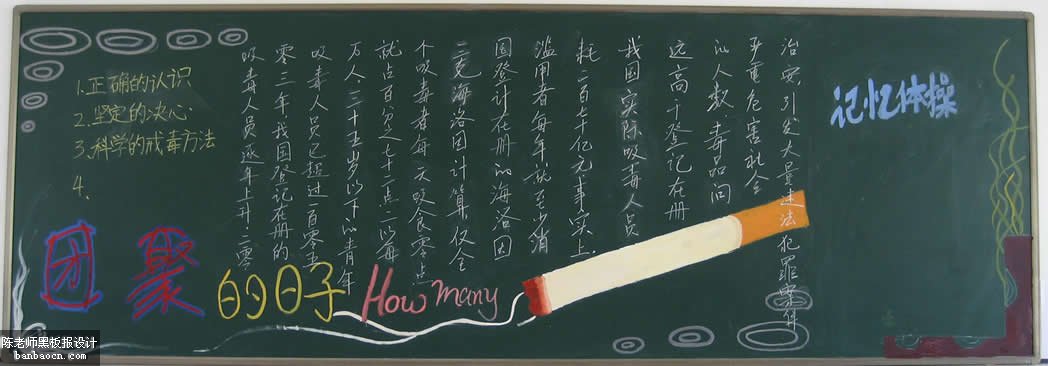 1.正确的认识
2.坚定的决心
3.科学的戒毒方法
4.
吸毒人员逐年上升.二零
零三年我国登记在册的
吸毒人员已超过百零五
万人三十五岁以下的青年
就占百分之七十二点二以每
个吸毒者每天吸食零点
三克海洛因计算,仅全
国登计在册的海洛因
滥用者每年就至少消
耗二百七十亿元事实上.
我国实际吸毒人员
远高于登记在册
的人数毒品问
严重危害社会
治安引发大量违法犯罪案件
记忆体操
团聚的日子 How many
陈老师黑板报设计
banbaocn.com